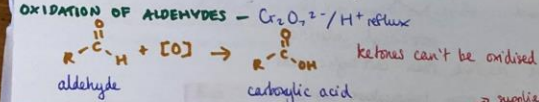 OXIDATION OF ALDEHYDES – Cr₂O₇²⁻/H⁺ reflux
O
R C H + [O] → O
R C OH ketones can't be oxidised
aldehyde carboxylic acid
→ supplie